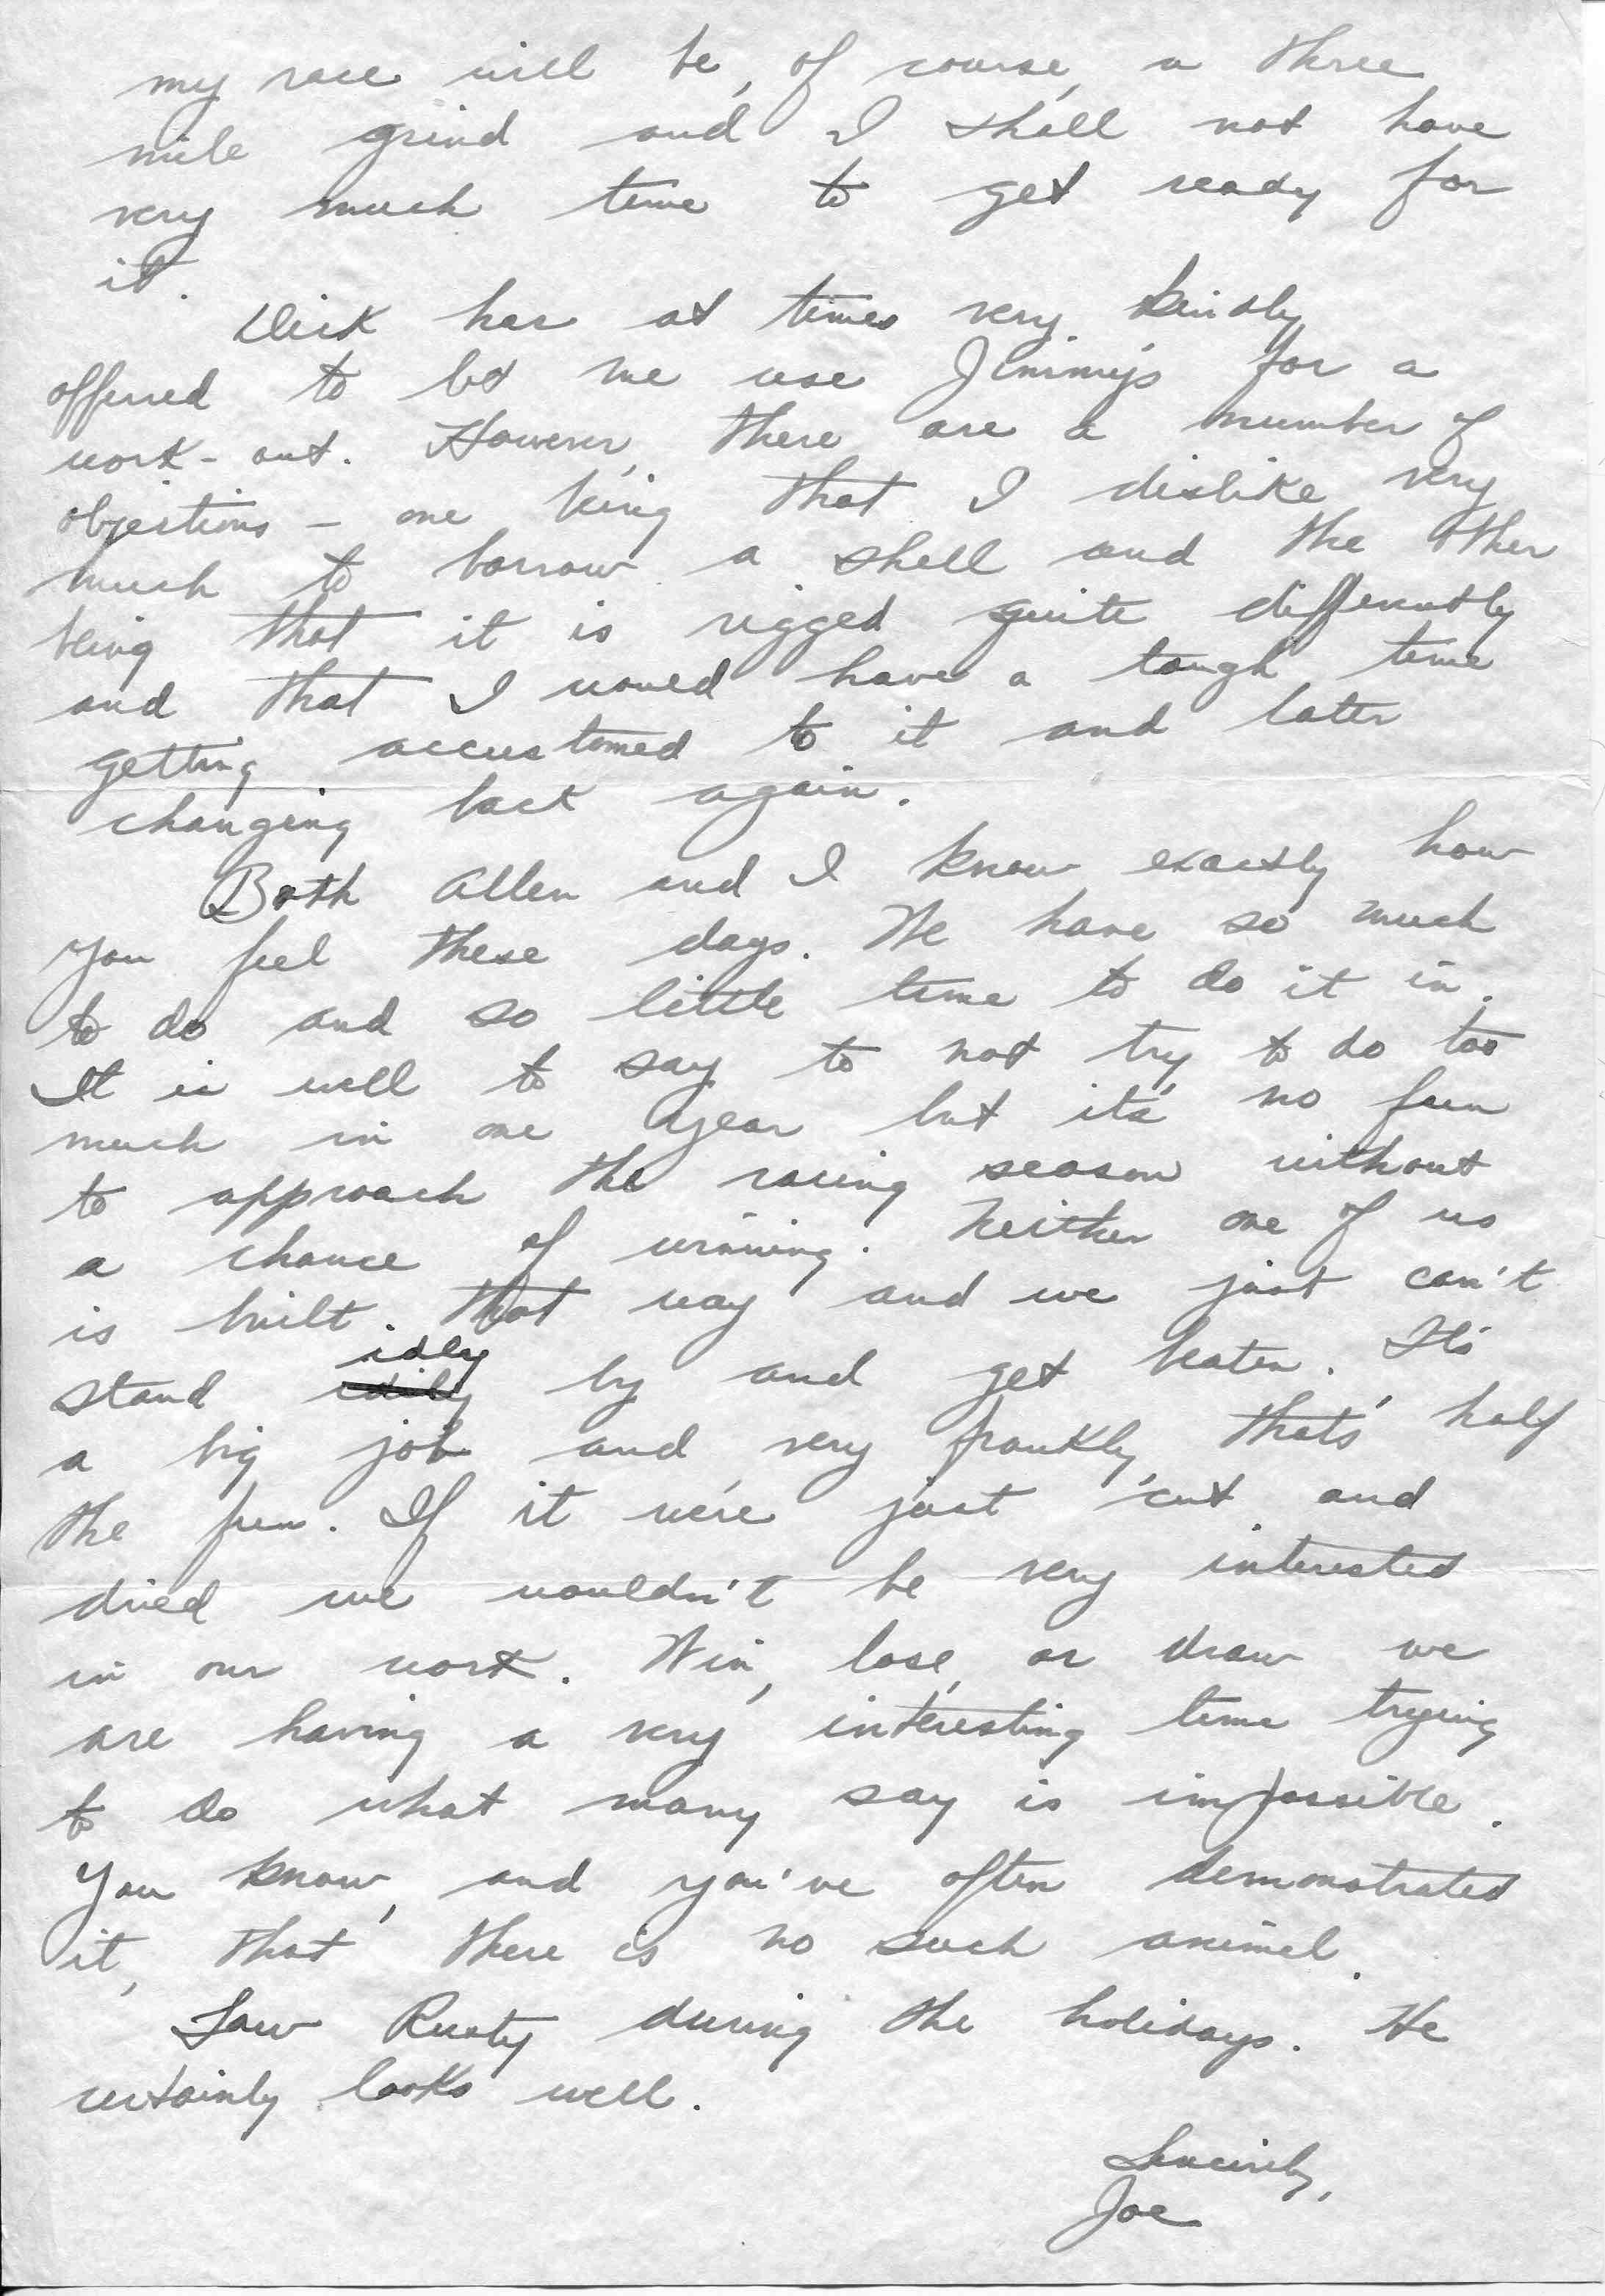 my race will be, of course, a three
mile grind and I shall not have
very much time to get ready for
it.
Dick has at times very kindly
offered to let me use Jimmy's for a
work-out. However, there are a number of
objections – one being that I dislike very
much to borrow a shell and the other
being that it is rigged quite differently
and that I would have a tough time
getting accustomed to it and later
changing back again.
Both Allen and I know exactly how
you feel these days. We have so much
to do and so little time to do it in.
It is well to say to not try to do too
much in one year but it's no fun
to approach the racing season without
a chance of winning. Neither one of us
is built that way and we just can't
idly
stand by and get beaten. It's
a big job and, very frankly, that's half
the fun. If it were just cut and
dried we wouldn't be very interested
in our work. Win, lose, or draw we
are having a very interesting time trying
to do what many say is impossible.
You know, and you've often demonstrated
it, that there is no such animal.
Saw Rusty during the holidays. He
certainly looks well.
Sincerely,
Joe